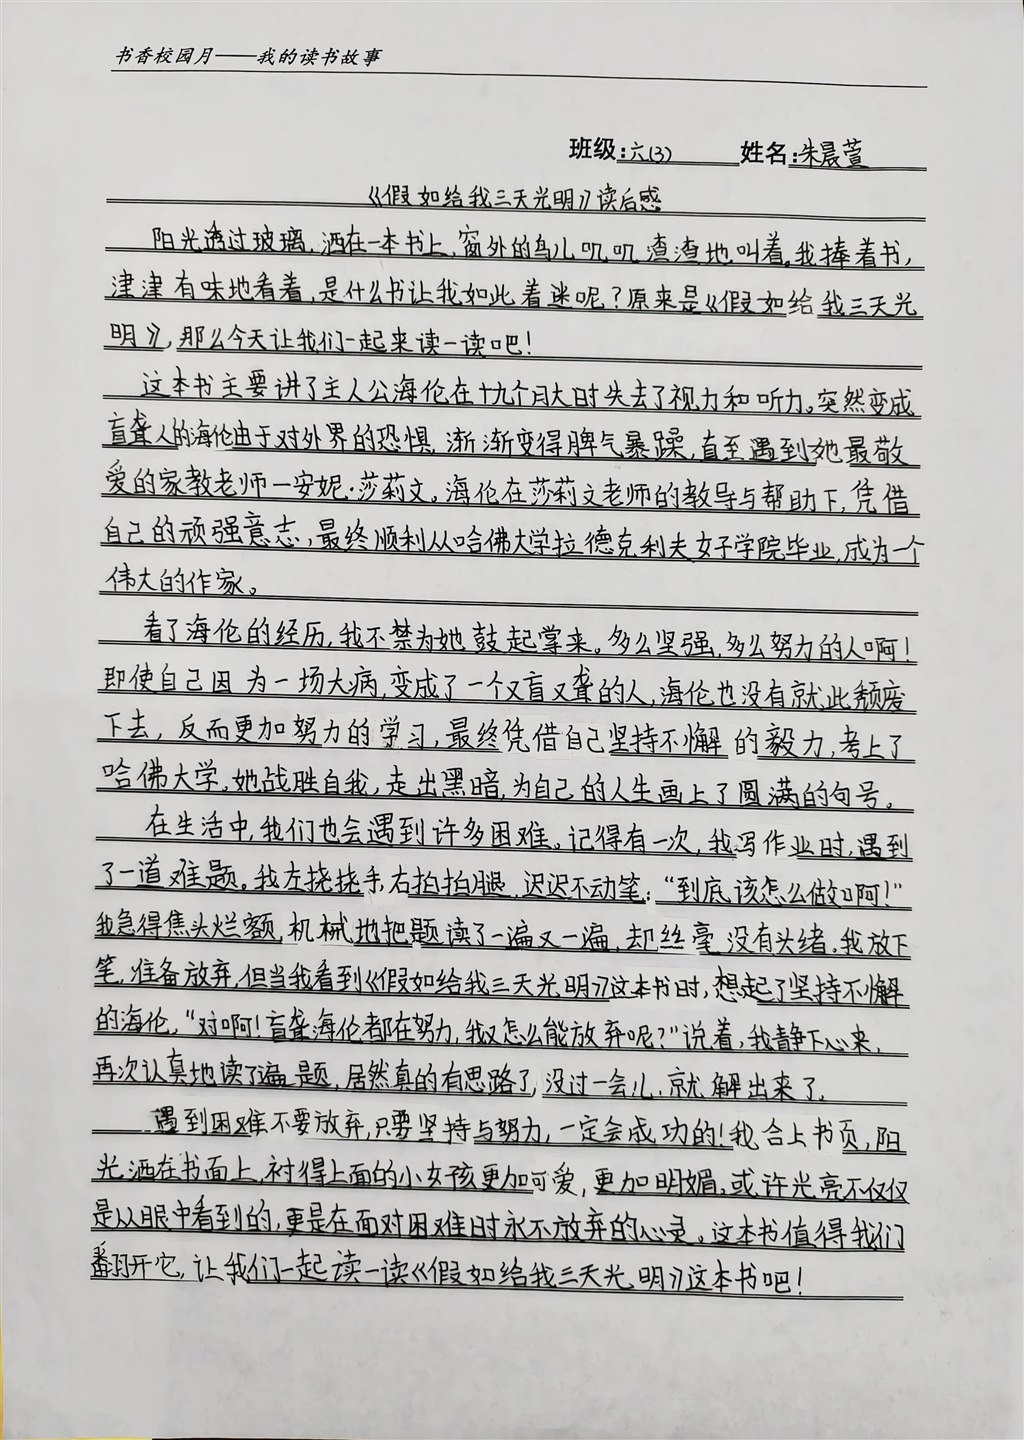 书香校园月——我的读书故事
班级:六(3) 姓名:朱晨萱
《假如给我三天光明》读后感
阳光透过玻璃,洒在一本书上,窗外的鸟儿叽叽渣渣地叫着。我捧着书,
津津有味地看着,是什么书让我如此着迷呢?原来是《假如给我三天光
明》,那么今天让我们一起来读一读吧!
这本书主要讲了主人公海伦在十九个月大时失去了视力和听力。突然变成
盲聋人的海伦由于对外界的恐惧,渐渐变得脾气暴躁,直至遇到她最敬
爱的家教老师—安妮·莎莉文。海伦在莎莉文老师的教导与帮助下,凭借
自己的顽强意志,最终顺利从哈佛大学拉德克利夫女子学院毕业,成为一个
伟大的作家。
看了海伦的经历,我不禁为她鼓起掌来。多么坚强,多么努力的人啊!
即使自己因为一场大病,变成了一个又盲又聋的人,海伦也没有就此颓废
下去,反而更加努力的学习,最终凭借自己坚持不懈的毅力,考上了
哈佛大学。她战胜自我,走出黑暗,为自己的人生画上了圆满的句号。
在生活中,我们也会遇到许多困难。记得有一次,我写作业时,遇到
了一道难题。我左挠挠手,右拍拍腿,迟迟不动笔:“到底该怎么做啊!”
我急得焦头烂额,机械地把题读了一遍又一遍,却丝毫没有头绪.我放下
笔,准备放弃,但当我看到《假如给我三天光明》这本书时,想起了坚持不懈
的海伦,“对啊!盲聋海伦都在努力,我又怎么能放弃呢?”说着,我静下心来,
再次认真地读了遍题,居然真的有思路了,没过一会儿,就解出来了。
遇到困难不要放弃,只要坚持与努力,一定会成功的!我合上书页,阳
光洒在书面上,衬得上面的小女孩更加可爱,更加明媚。或许光亮不仅仅
是从眼中看到的,更是在面对困难时永不放弃的心灵。这本书值得我们
翻开它,让我们一起读一读《假如给我三天光明》这本书吧!